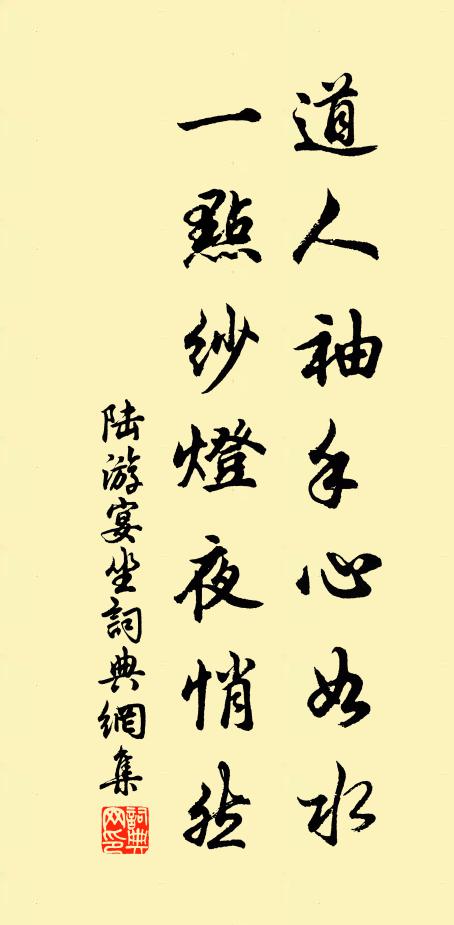 道人袖手心如水
一點紗燈夜悄然
陆游宴坐詞典網集
詞典
网印